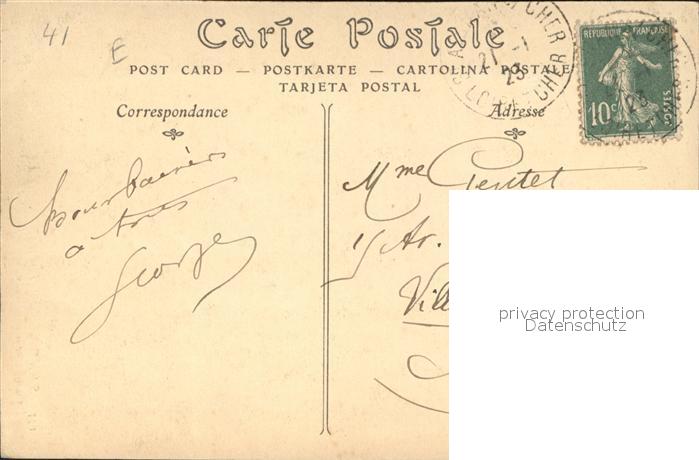 41
E
Carte Postale
POST CARD — POSTKARTE — CARTOLINA POSTALE
TARJETA POSTAL
Correspondance
Adresse
REPUBLIQUE FRANÇAISE
10c
POSTES
CHER
21 -1
23
LOIR-ET-CHER
a tous
Mme
15 Av.
Vill
privacy protection
Datenschutz